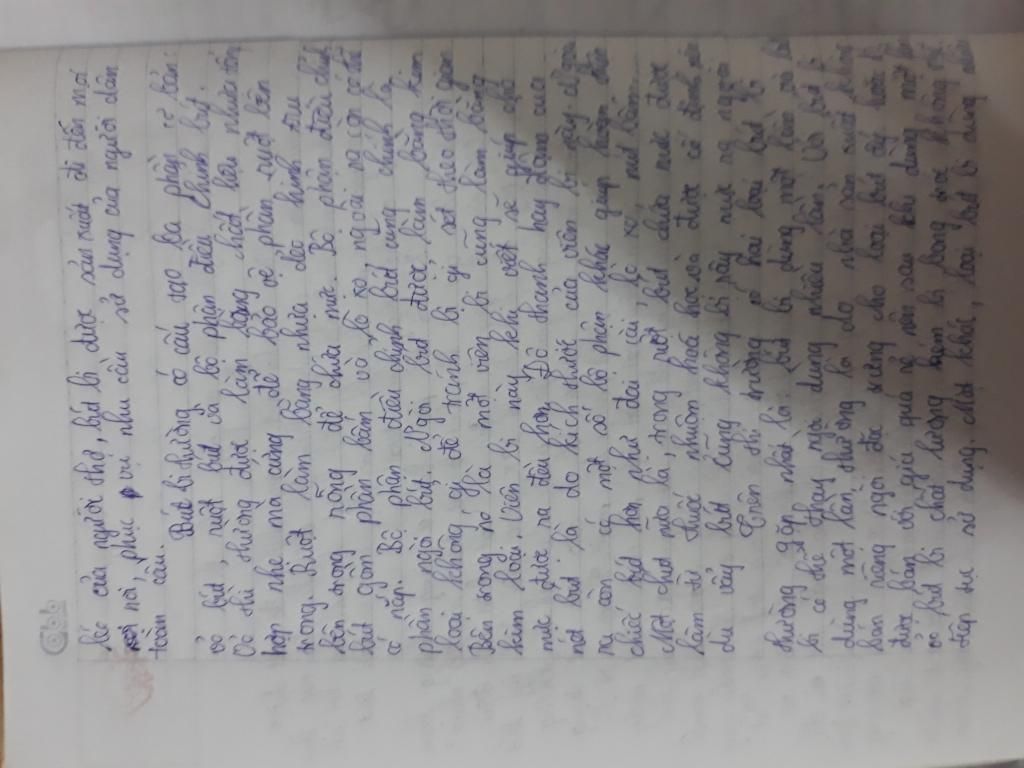 Club
bé của người thợ, bút bi được sản xuất đi đến mọi
nơi, phục vụ nhu cầu sử dụng của người dân
toàn cầu.
Bút bi thường có cấu tạo ba phần cơ bản:
vỏ bút, ruột bút và bộ phận điều chỉnh bút.
Vỏ thì thường được làm bằng chất liệu nhựa tổng
hợp nhẹ mà cứng để bảo vệ phần ruột bên
trong. Ruột làm bằng nhựa dẻo hình trụ
bên trong rỗng để chứa mực. Bộ phận điều chỉnh
bút gồm phần bấm và lò xo, ngoài ra còn có thể
có nắp. Bộ phận điều chỉnh bút cũng chính là
phần ngòi bút. Ngòi bút được làm bằng kim
loại không gỉ để tránh bị gỉ sét theo thời gian
Bên trong nó là một viên bi cũng làm bằng
kim loại. Viên bi này khi viết sẽ giúp cho
mực được ra đều hơn. Độ thanh hay đậm của
nét bút là do kích thước của viên bi này. Ngoài
ra còn có một số bộ phận khác giúp hoàn thiện
chiếc bút hơn như đai cài, lò xo, nút bấm...
Một chút nữa là, trong ruột bút chứa mực được
làm từ thuốc nhuộm hoá học và được cô định nên
dù vẩy bút cũng không bị rây mực ra ngoài
Trên thị trường có hai loại bút bi
thường gặp nhất là: bút bi dùng một lần và bút
bi có thể thay ngòi dùng nhiều lần. Với bút bi
dùng một lần, thường là do nhà sản xuất không
bán riêng ngòi đặc trưng cho loại bút ấy hoặc là
được bán với giá quá rẻ nên sau khi dùng một lần
vỏ bút bị chất lượng kém bị bong nơi không thể
tiếp tục sử dụng. Mặt khác, loại bút bi dùng nhiều